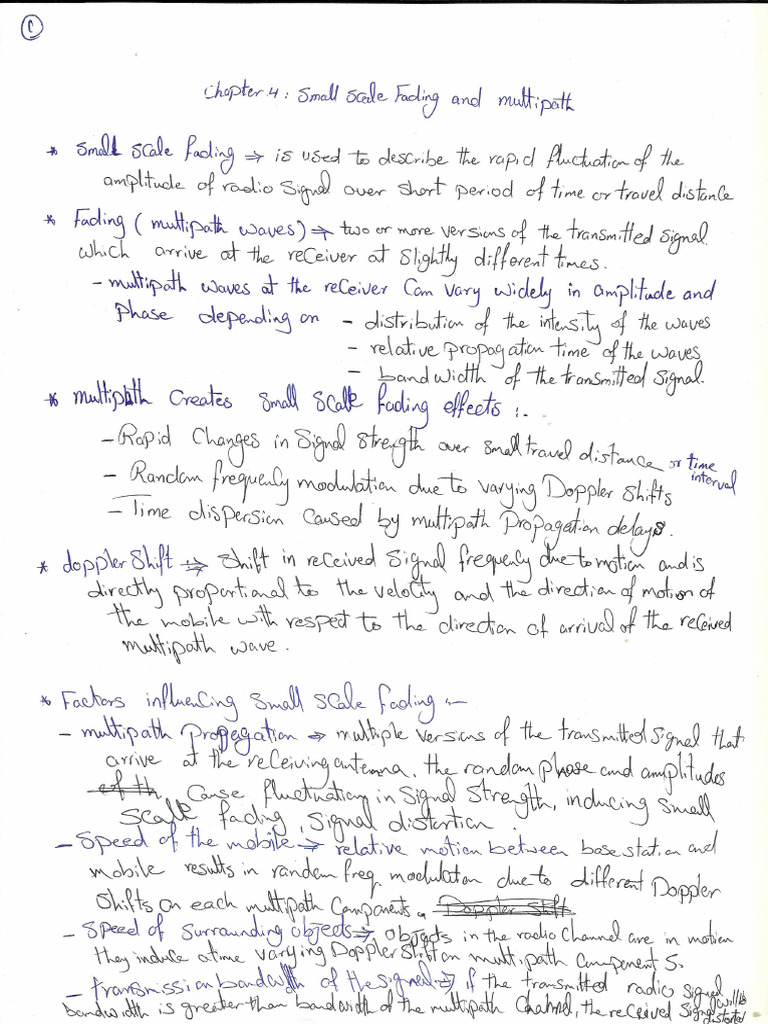 1
Chapter 4: Small Scale Fading and multipath
* Small Scale fading ⇒ is used to describe the rapid fluctuation of the
amplitude of radio Signal over short period of time or travel distance
* Fading (multipath waves) ⇒ two or more versions of the transmitted signal
which arrive at the receiver at slightly different times.
- multipath waves at the receiver Can vary widely in amplitude and
Phase depending on - distribution of the intensity of the waves
- relative propagation time of the waves
- bandwidth of the transmitted signal.
* multipath Creates Small Scale fading effects :-
- Rapid Changes in Signal Strength over small travel distance or time
interval
- Random frequency modulation due to varying Doppler Shifts
- Time dispersion Caused by multipath Propagation delays.
* doppler Shift ⇒ Shift in received Signal frequency due to motion and is
directly proportional to the velocity and the direction of motion of
the mobile with respect to the direction of arrival of the received
multipath wave.
* Factors influencing Small Scale fading :-
- multipath Propagation ⇒ multiple versions of the transmitted signal that
arrive at the receiving antenna. the random phase and amplitudes
of th Cause fluctuation in Signal Strength, inducing small
Scale fading, Signal distortion.
- Speed of the mobile ⇒ relative motion between base station and
mobile results in random freq. modulation due to different Doppler
Shifts on each multipath Components. Doppler Shift
- Speed of Surrounding objects ⇒ objects in the radio Channel are in motion
they induce a time varying Doppler Shift on multipath Component S.
- transmission bandwidth of the signal ⇒ if the transmitted radio Signal
bandwidth is greater than bandwidth of the multipath Channel, the received Signal will be
distorted